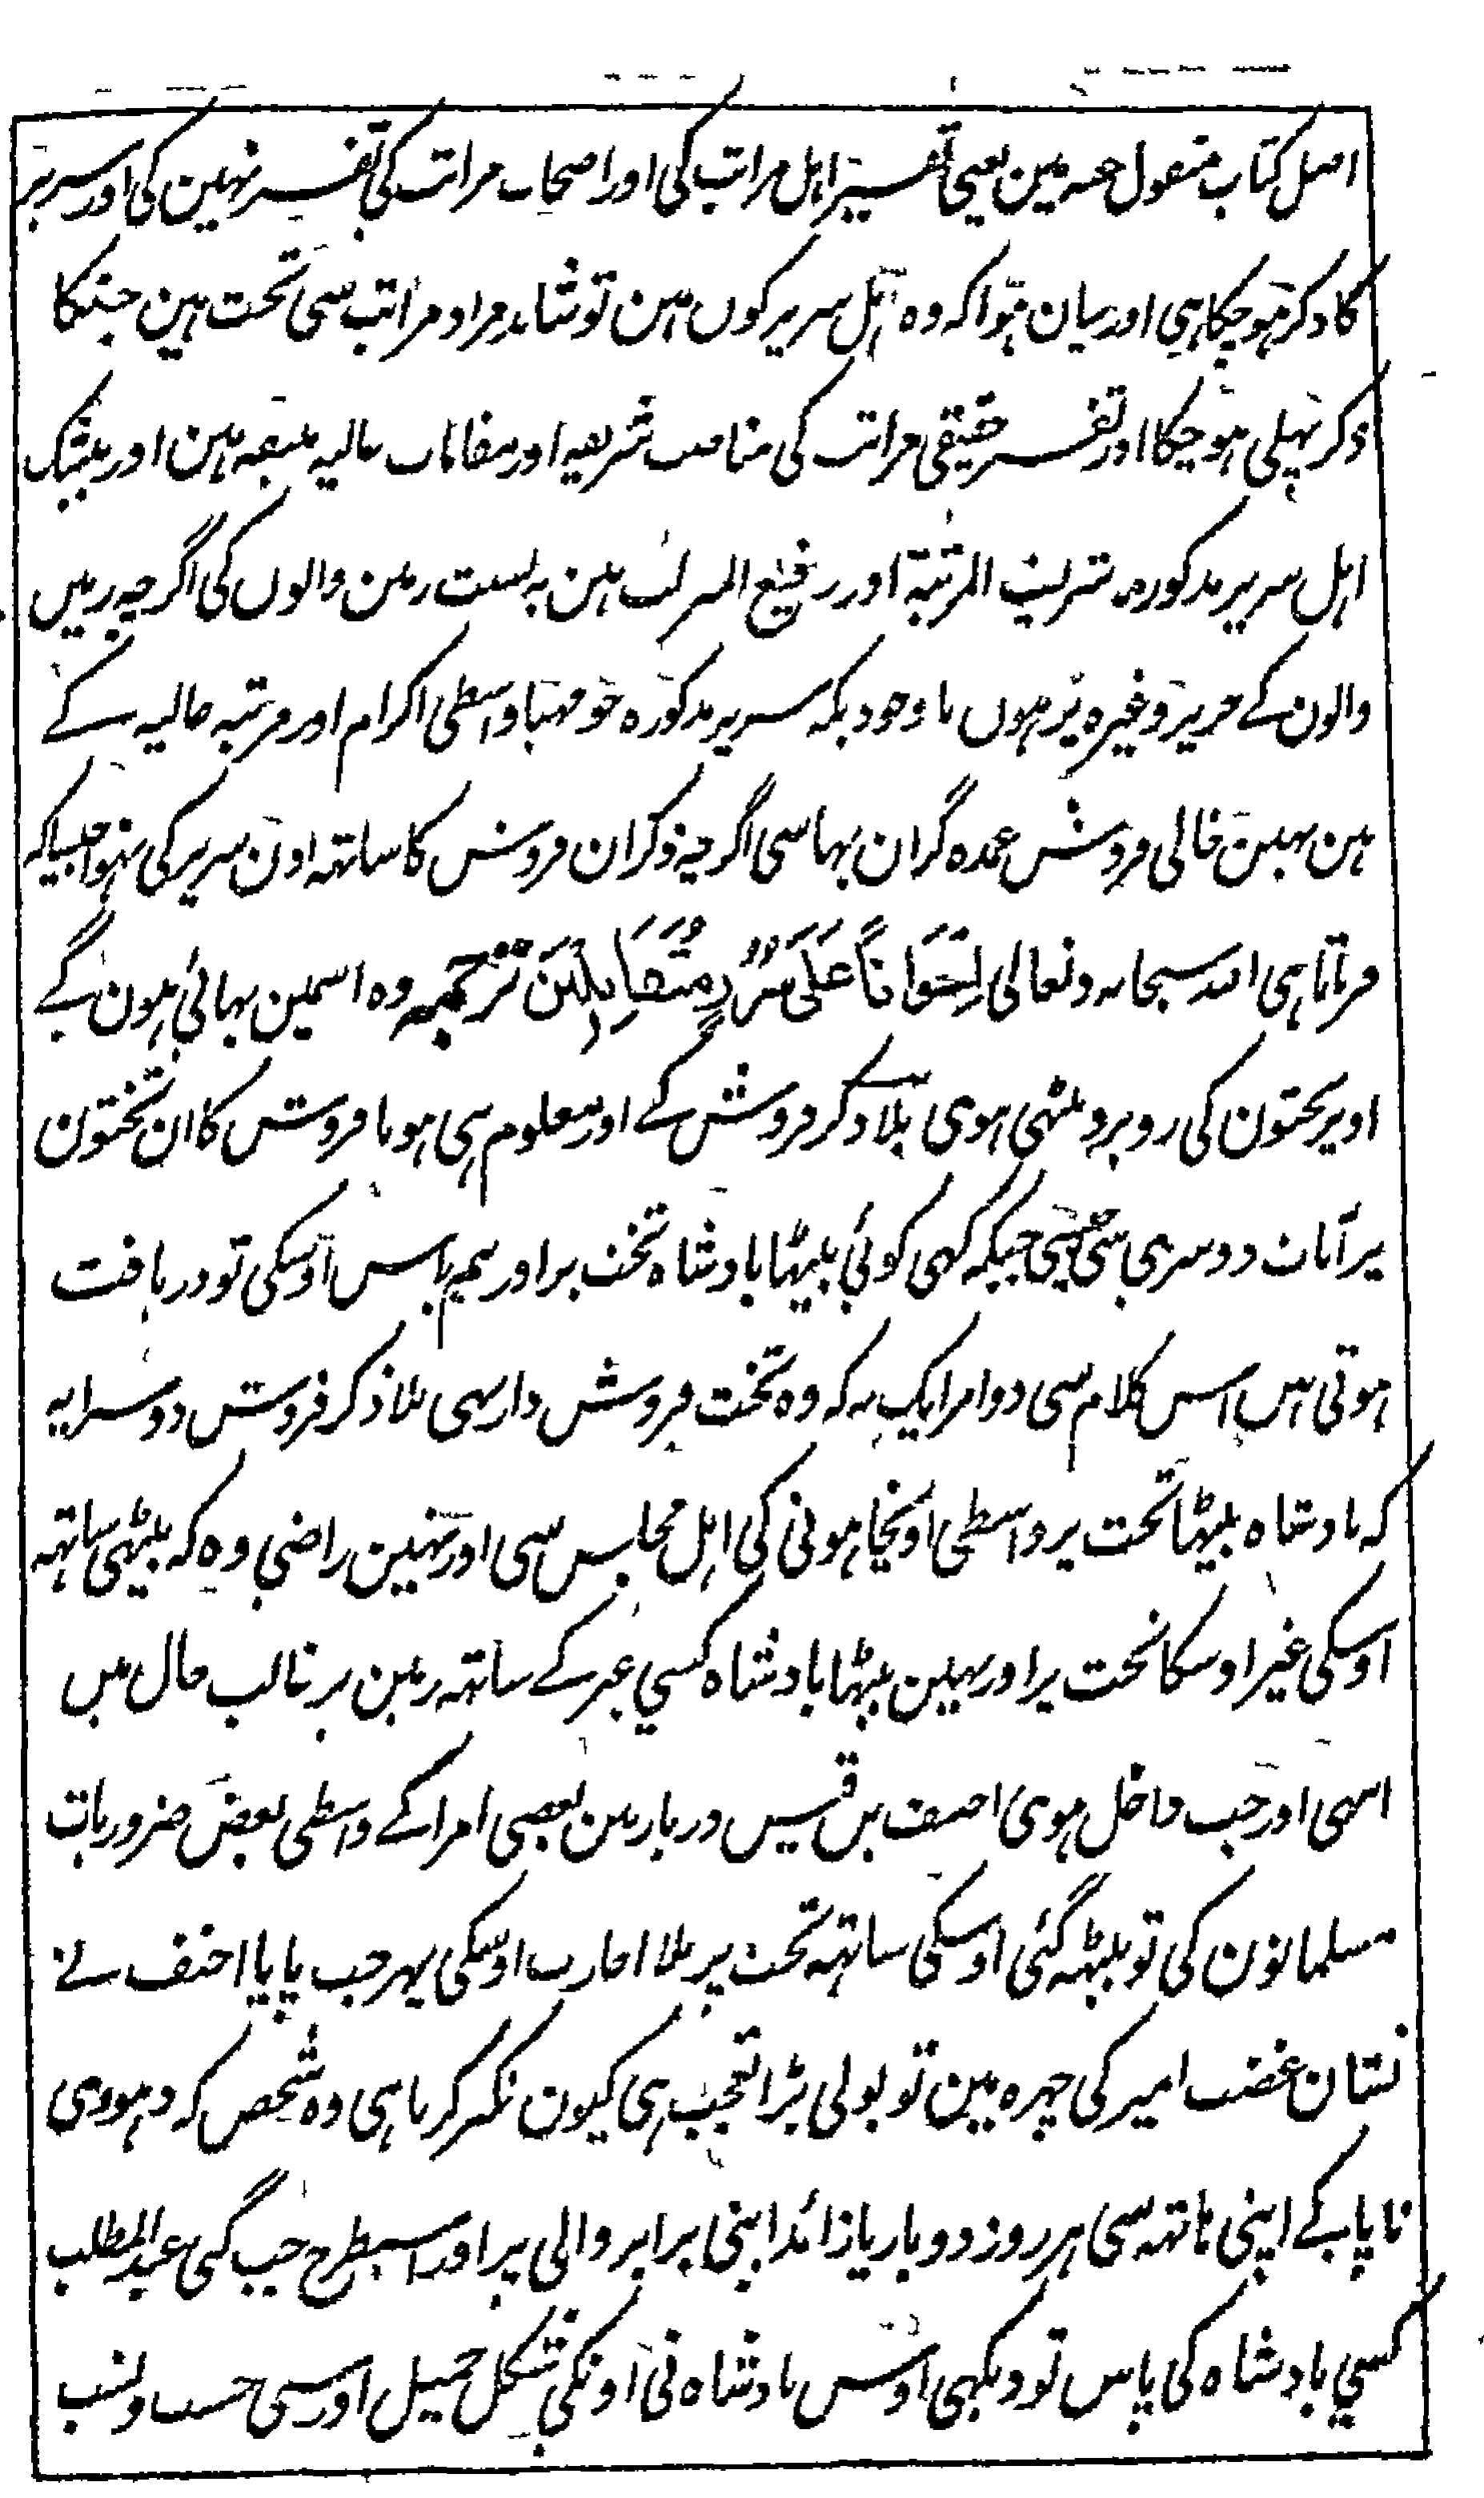 اصل کتاب منقول عنہ مین یعنی تفسیر اہل مراتب کی اور اصحاب مراتب کی تفسیر نہین کی اور سریر
کا ذکر ہو چکا ہی اور بیان ہوا کہ وہ اہل سریر کون ہین تو شاید مراد مراتب سی تخت ہین جنکا
ذکر پہلی ہو چکا اور تفسیر حقیقی مراتب کی مناصب شریفہ اور مقامات عالیہ ہین اور بیشک
اہل سریر مذکورہ شریف المرتبۃ اور رفیع المنزلت ہین بہ نسبت زمین والوں کی اگرچہ زمیں
والون کے حریر وغیرہ پر ہوں باوجودیکہ سریر مذکورہ جو مہیا واسطی اکرام اور مرتبہ عالیہ کے
ہین نہین خالی فروش عمدہ گران بہا سی اگرچہ ذکر ان فروش کا ساتھہ اون سریر کی نہوا جیسا کہ
فرماتا ہی اللہ سبحانہ وتعالی اِخْوَانًا عَلَىٰ سُرُرٍ مُتَقَابِلِيْنَ ترجمہ وہ اسمین بہائی ہون گے
اوپر تختون کی روبرو بیٹہی ہوی بلا ذکر فروش کے اور معلوم ہی ہونا فروش کا ان تختون
پر آیات دوسری سی جیسکہ کہی کوئی بیٹہا بادشاہ تخت پر اور ہم پاس اوسکی تو دریافت
ہوتی ہیں اس کلام سی دو امر ایک یہ کہ وہ تخت فروش دار ہی بلا ذکر فروش دوسرا یہ
کہ بادشاہ بیٹہا تخت پر واسطی اونچا ہونی کی اہل مجالس سی اور نہین راضی وہ کہ بیٹہی ساتہہ
اوسکی غیر اوسکا تخت پر اور نہین بیٹہا بادشاہ کسی غیر کے ساتہہ زمین پر غالب حال میں
انتہی اور جب داخل ہوی احنف بن قیس دربار مین بعضی امرا کے واسطی بعض ضروریات
مسلمانون کی تو بیٹہہ گئی اوسکی ساتہہ تخت پر بلا اجازت اوسکی پہر جب پایا احنف نے
نشان غضب امیر کی چہرہ مین تو بولی بڑا تعجب ہی کیون تکبر کرتا ہی وہ شخص کہ دہووی
ناپاکی اپنی ہاتہہ سی ہر روز دو بار یا زائد اپنی برابر والی پر اور اسیطرح جب گئی عبدالمطلب
کسی بادشاہ کی پاس تو دیکہی اوس بادشاہ نی اونکی شکل جمیل اور سنی حسب و نسب